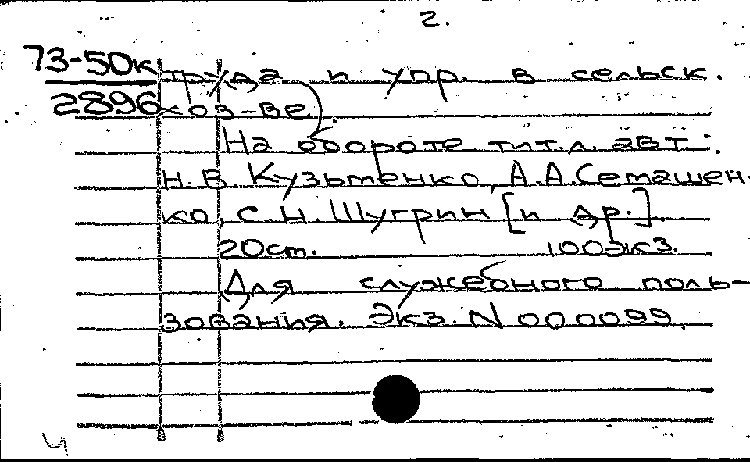 2.
73-50к труда и упр. в сельск.
2896 хоз-ве
На обороте тит.л. авт.:
Н.В. Кузьменко, А.А.Семашен-
ко, С.Н. Шугрин [и др.].
20см. 100экз.
Для служебного поль-
зования. Экз. N 000099.
Ч